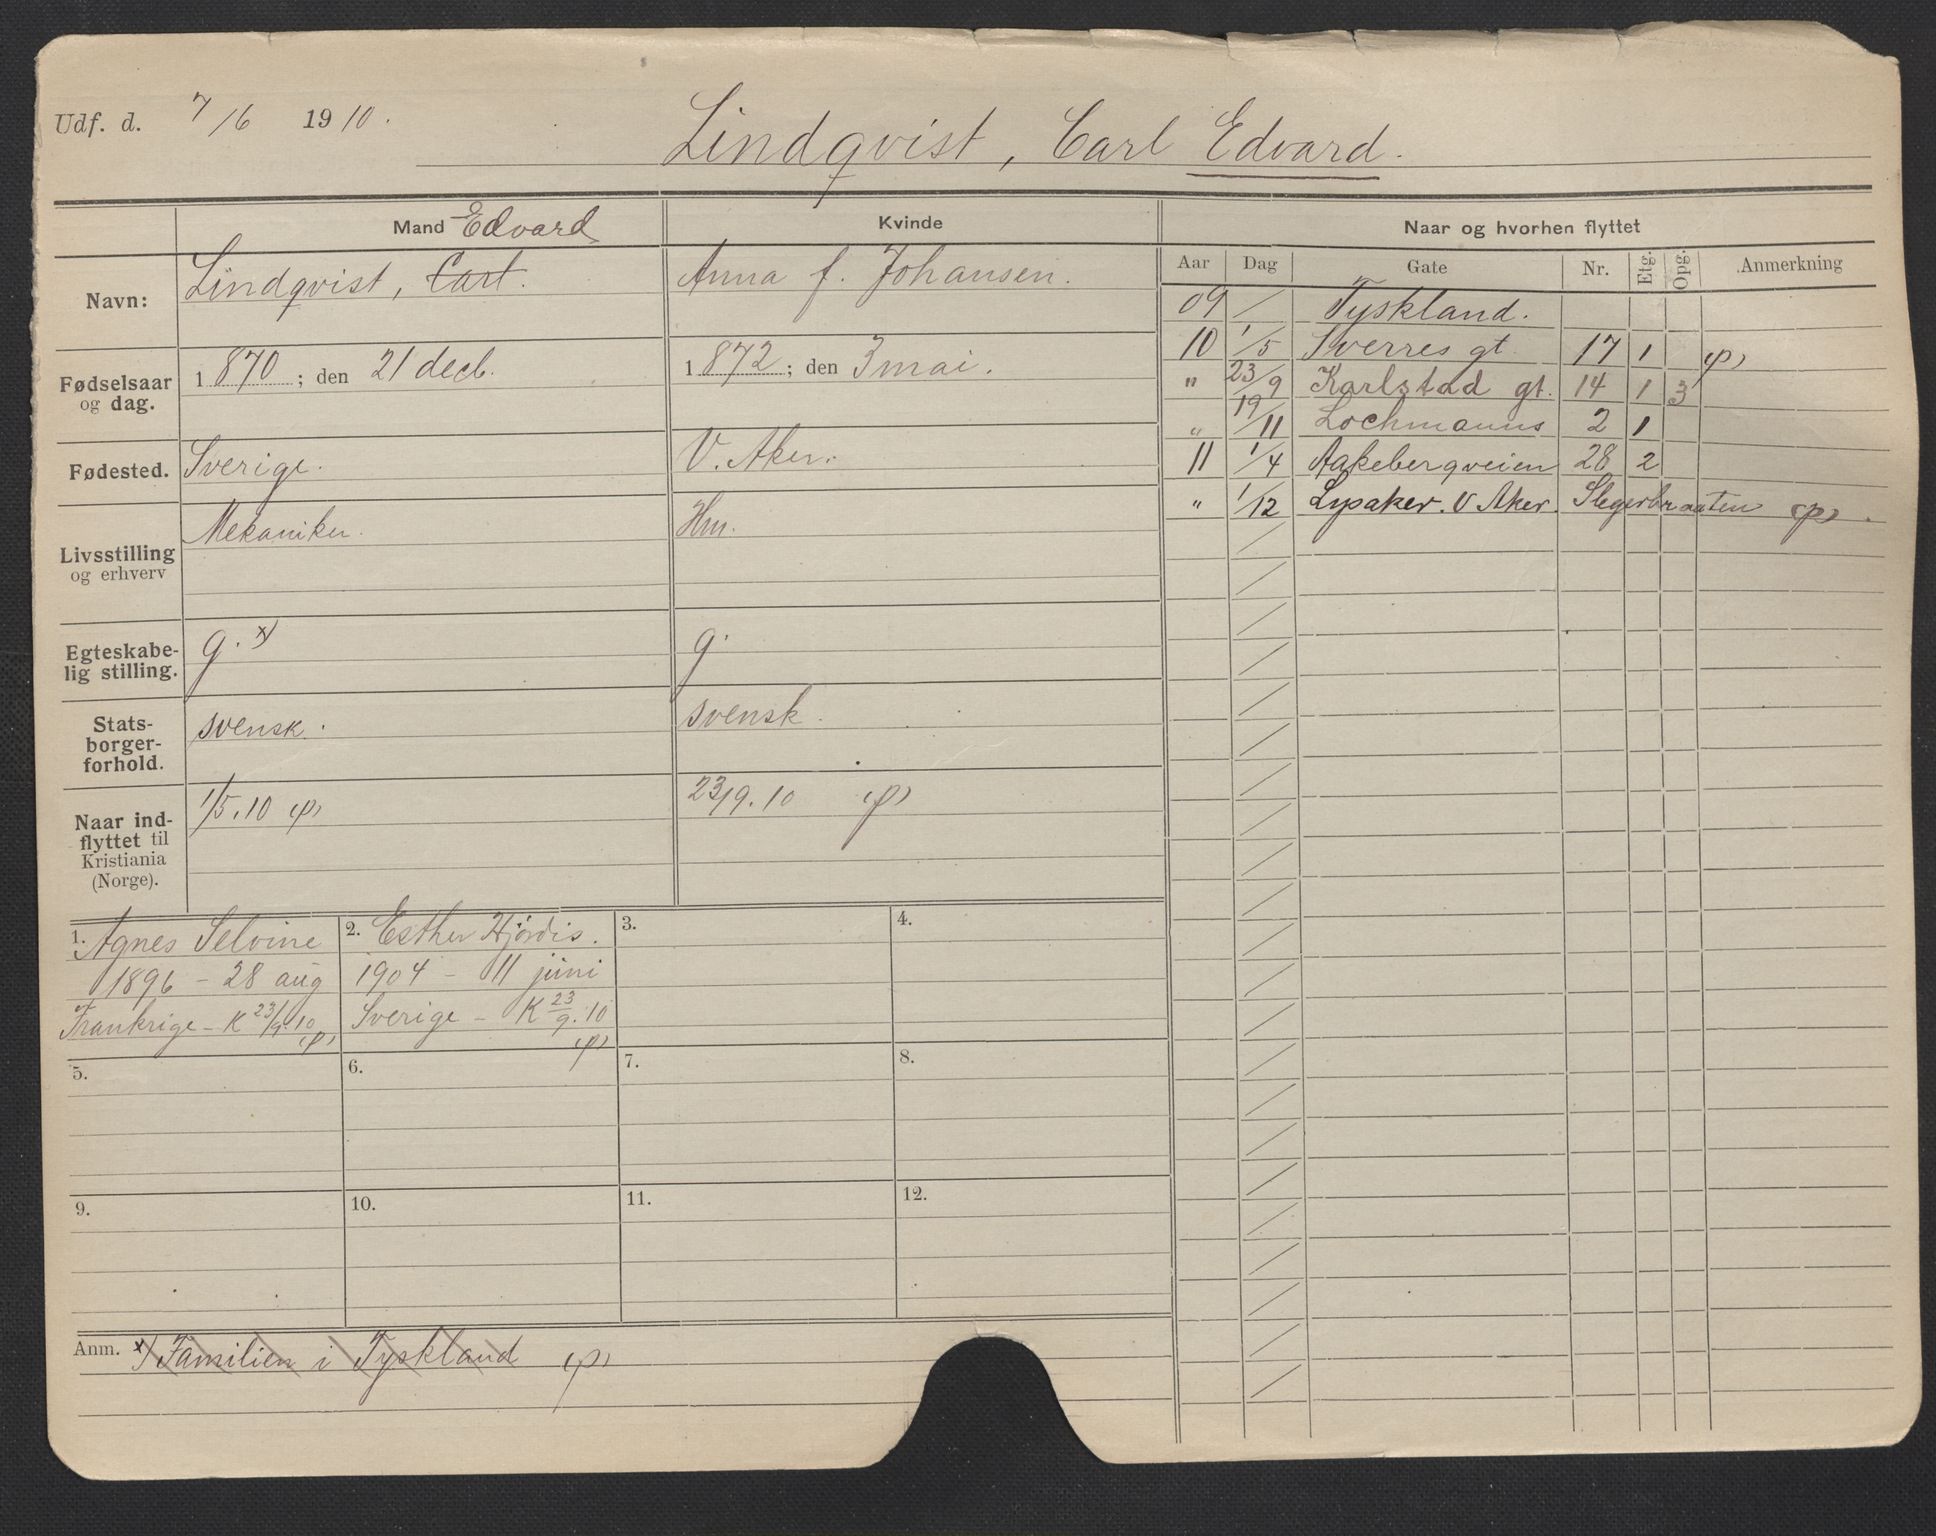 Udf. d. 7/6 1910.
Lindqvist, Carl Edvard.
Mand Edvard
Kvinde
Naar og hvorhen flyttet
Navn:
Lindqvist, Carl.
Anna f. Johansen.
Fødselsaar og dag.
1870; den 21 decb.
1872; den 3 mai.
Fødested.
Sverige.
V. Aker.
Livsstilling og erhverv
Mekaniker.
Hm.
Egteskabe-
lig stilling.
g. x)
g.
Stats-
borger-
forhold.
svensk.
svensk.
Naar ind-
flyttet til
Kristiania
(Norge).
1/5.10 (p)
23/9.10 (p)
Aar Dag Gate Nr. Etg. Opg. Anmerkning
09 / Tyskland.
10 1/5 Sverres gt. 17 1 (p)
" 23/9 Karlstad gt. 14 1 3
" 19/11 Lochmanns 2 1
11 1/4 Aakebergveien 28 2
" 1/12 Lysaker. V Aker. (p).
1. Agnes Selvine
1896 - 28 aug
Frankrige - K 23/9.10
(p)
2. Esther Hjørdis.
1904 - 11 juni
Sverige - K 23/9.10
(p)
3.
4.
5.
6.
7.
8.
9.
10.
11.
12.
Anm. x) Familien i Tyskland (p)